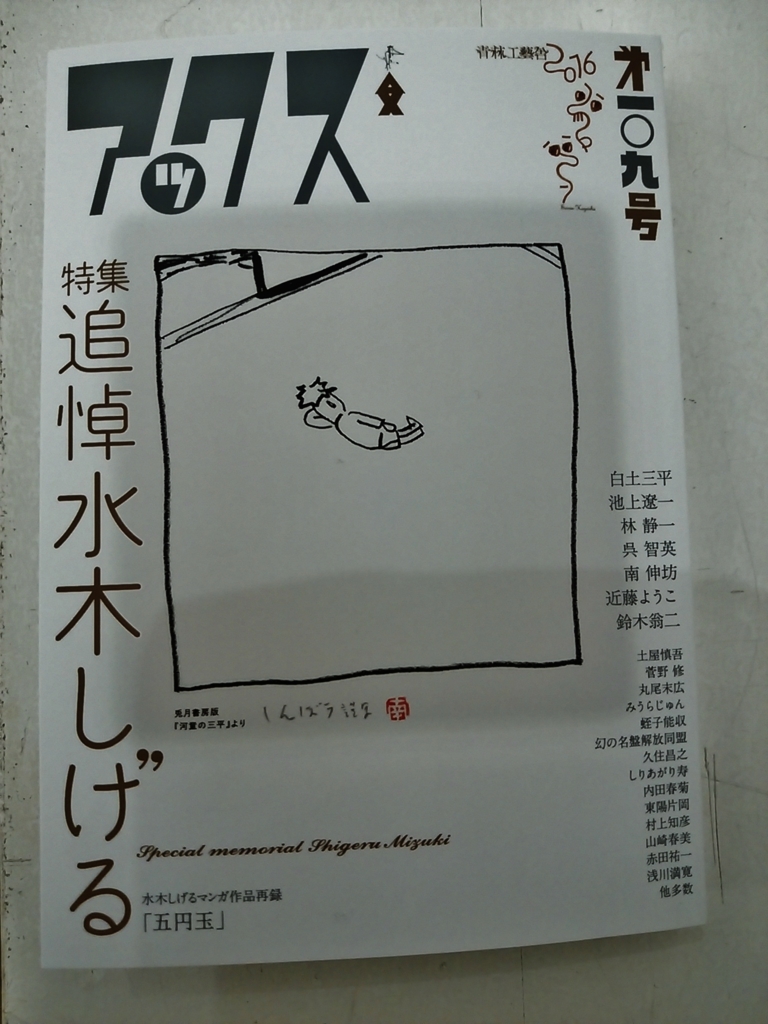 アックス
青林工藝舎
2016
第一〇九号
特集
追悼 水木しげる
白土三平
池上遼一
林 静一
呉 智英
南 伸坊
近藤ようこ
鈴木翁二
土屋慎吾
菅野 修
丸尾末広
みうらじゅん
蛭子能収
幻の名盤解放同盟
久住昌之
しりあがり寿
内田春菊
東陽片岡
村上知彦
山崎春美
赤田祐一
浅川満寛
他多数
兎月書房版
『河童の三平』より
しんぼう
南
Special memorial Shigeru Mizuki
水木しげるマンガ作品再録
「五円玉」